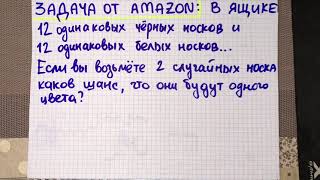 ЗАДАЧА ОТ AMAZON: В ЯЩИКЕ
12 одинаковых чёрных носков и
12 одинаковых белых носков...
Если вы возьмёте 2 случайных носка
каков шанс, что они будут одного
цвета?